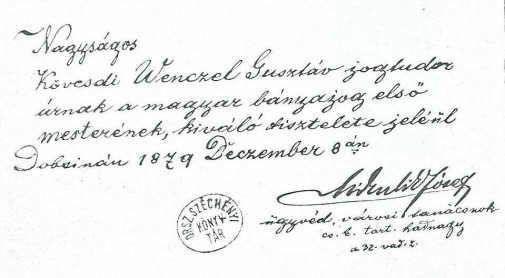 Nagyságos
Kövesdi Wenczel Gusztáv jogtudor
úrnak a magyar bányajog első
mesterének, kiváló tisztelete jeléül
Dobsinán 1879 Deczember 8án
Mikulik József
ügyvéd, városi tanácsnok
cs. k. tart. hadnagy
a 32. vad. z.
ORSZ. SZÉCHÉNYI
KÖNYV-
TÁR